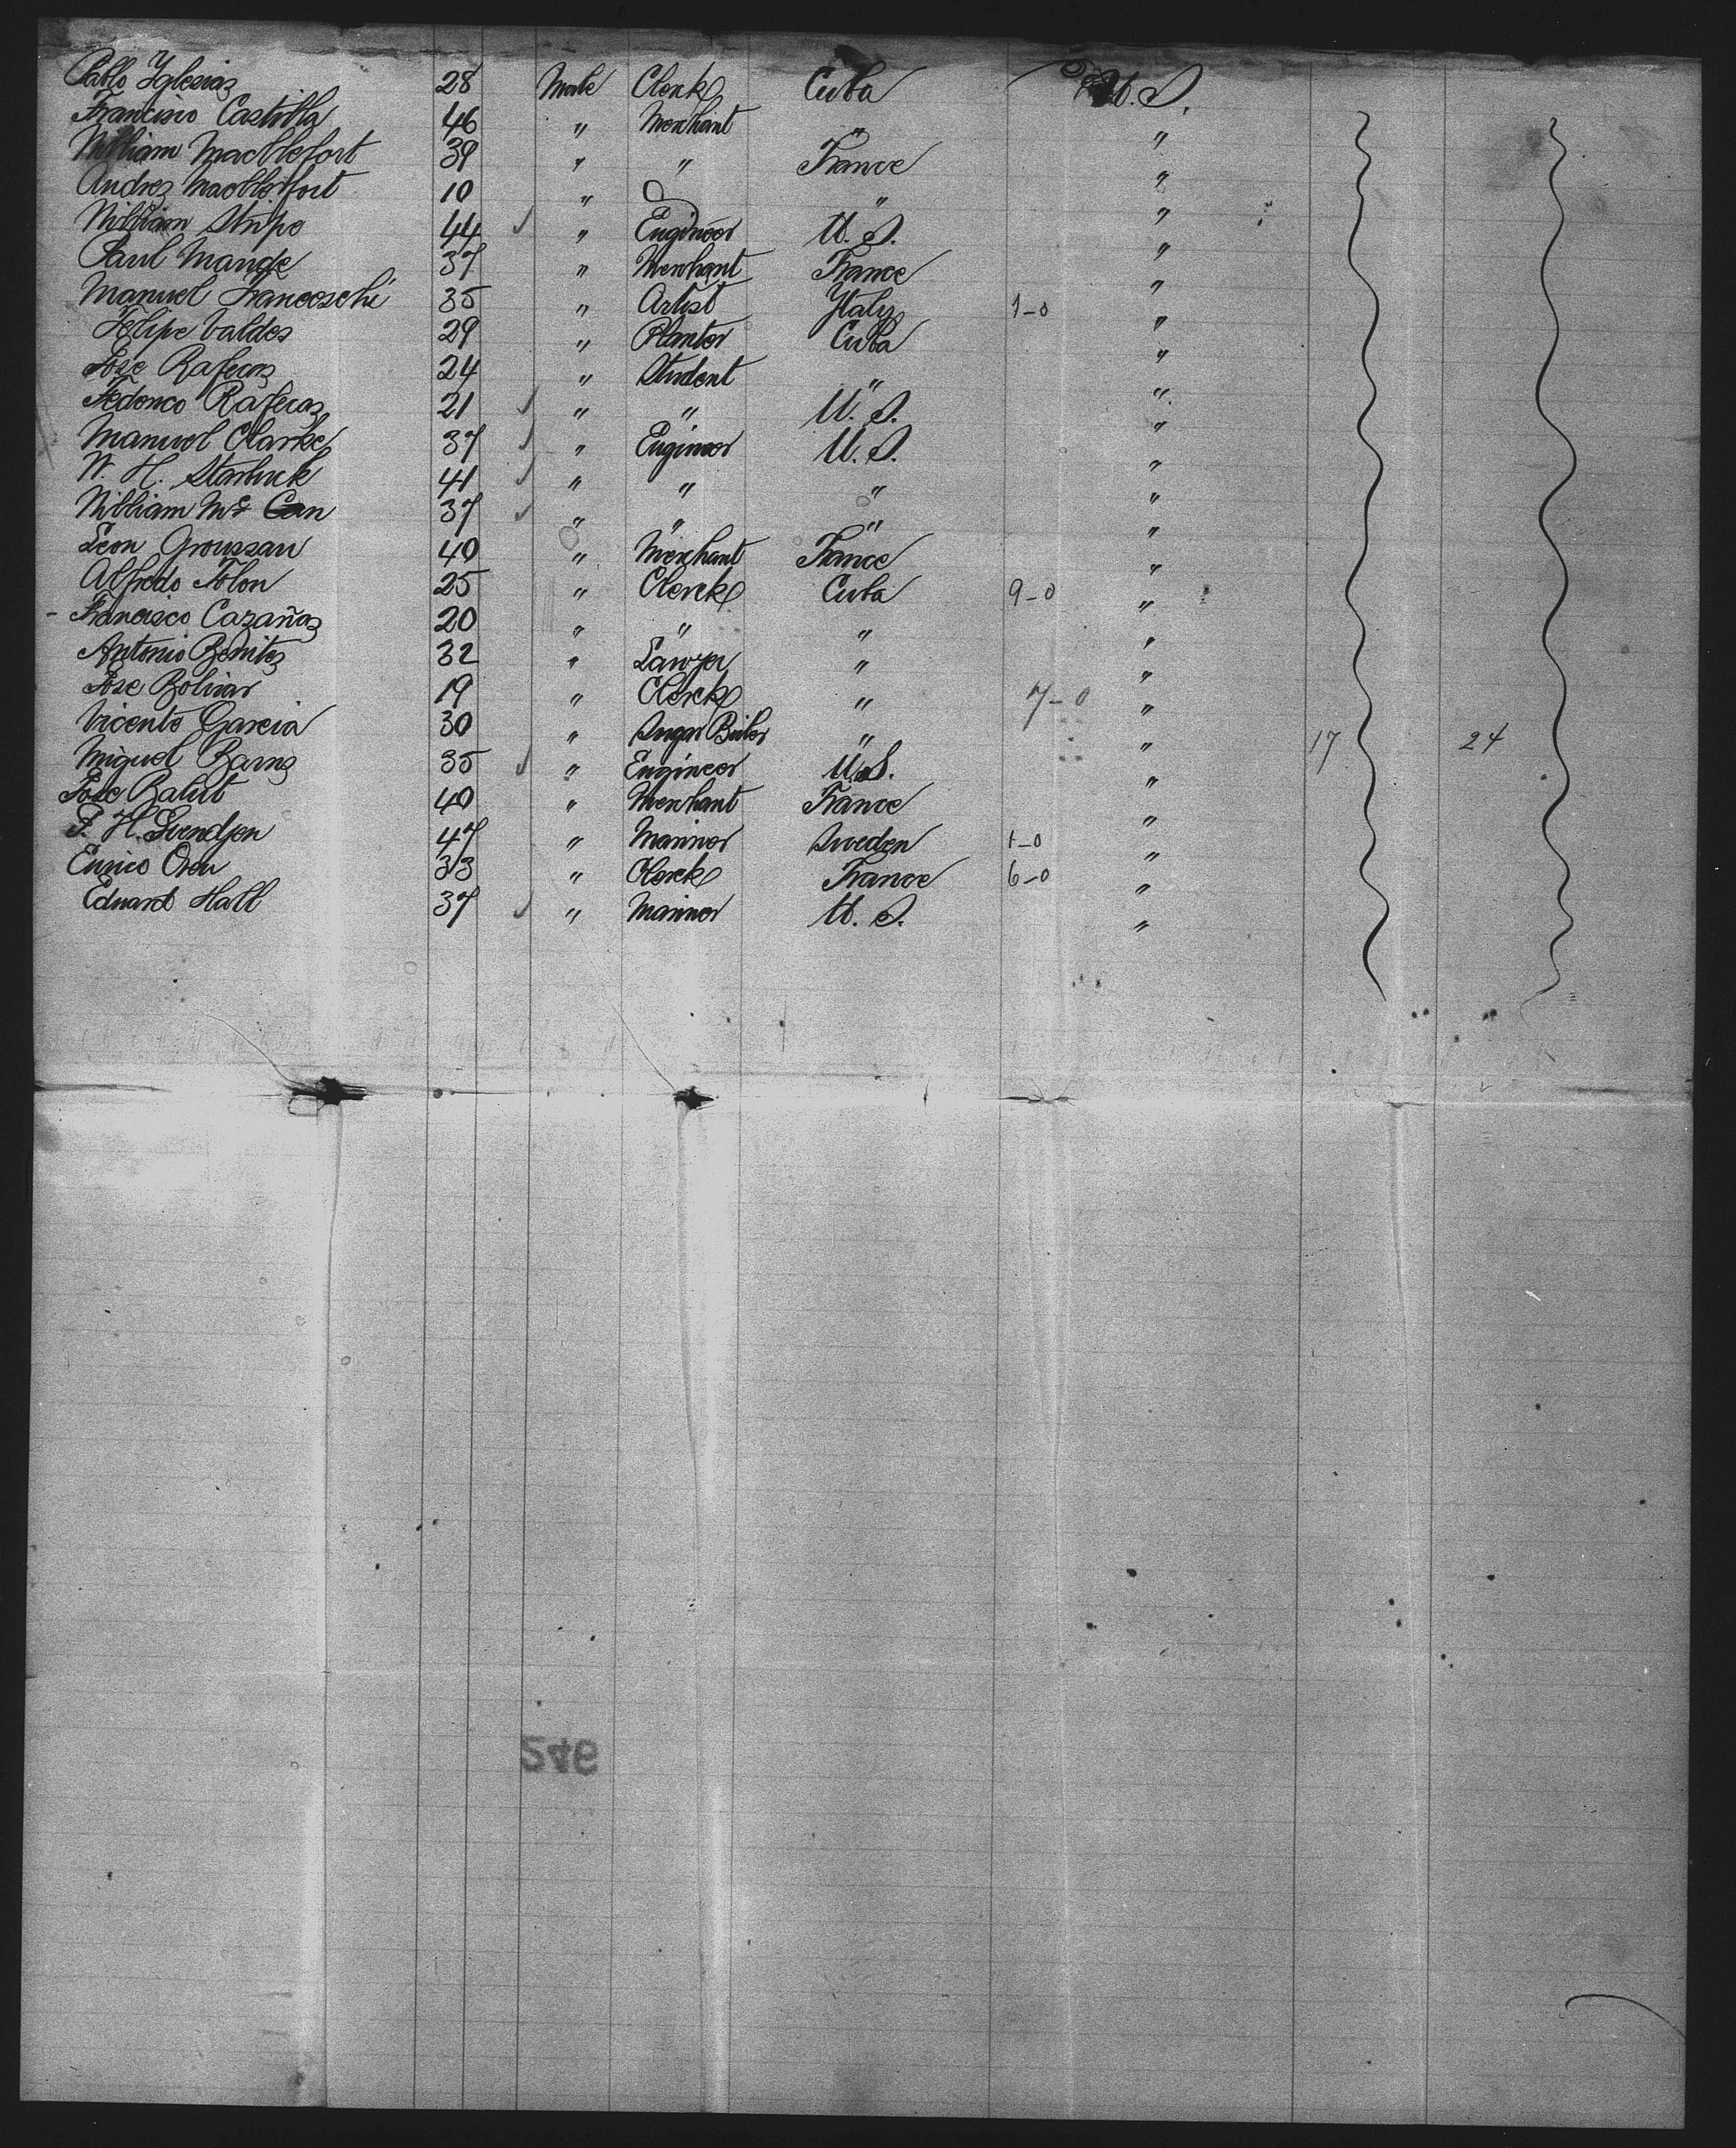 Pablo Yglesias 28 Male Clerk Cuba U. S.
Francisco Castilla 46 " Merchant " "
William Macklefort 39 " " France "
Andres Macklefort 10 " 0 " "
William Stripe 44 ✓ " Engineer U. S. "
Paul Mange 37 " Merchant France "
Manuel Franceschi 35 " Artist Ytaly 1-0 "
Felipe Valdes 29 " Planter Cuba "
Jose Rafecas 24 " Student " "
Federico Rafecas 21 ✓ " " U. S. "
Manuel Clarke 37 ✓ " Engineer U. S. "
W. H. Starbuck 41 ✓ " " " "
William Mc Can 37 ✓ " " " "
Leon Groussau 40 " Merchant France "
Alfredo Tolon 25 " Clerck Cuba 9-0 "
- Francisco Cazañas 20 " " " "
Antonio Benites 32 " Lawyer " "
Jose Bolivar 19 " Clerck " 7-0 "
Vicente Garcia 30 " Sugar " " 17 24
Miguel Barns 35 ✓ " Engineer U. S. "
Jose Balut 40 " Merchant France "
F. H. Svendsen 47 " Mariner Sweden 1-0 "
Enrico Oreu 33 " Clerck France 6-0 "
Eduard Hall 37 ✓ " Mariner U. S. "
246